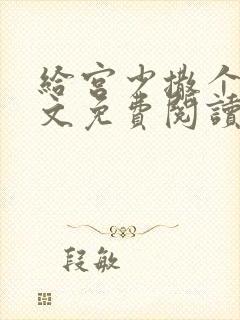 給宮少撒个
文免費閱讀
段敏